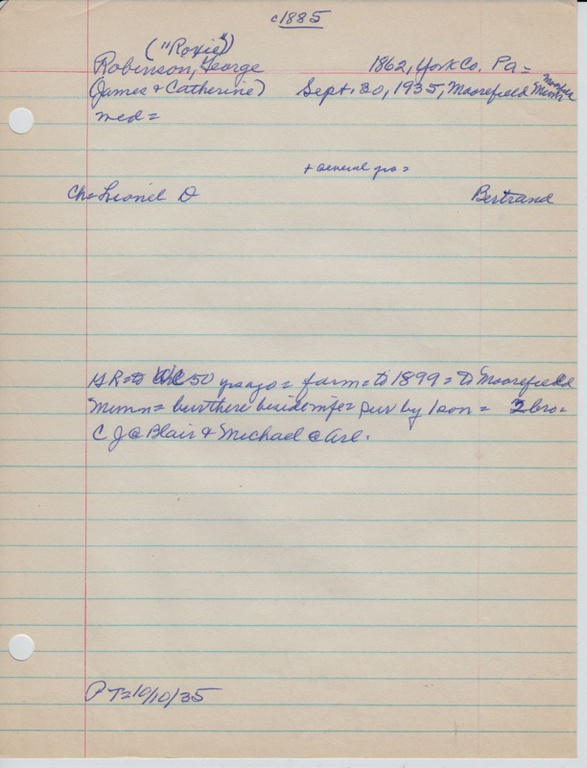 c1885
("Roxie")
Robinson, George 1862, York Co. Pa =
(James & Catherine) Sept. 20, 1935, Moorefield Minn
med =
+ General gro =
Ch = Lionel D Bertrand
GR = to WC 50 yrs ago = farm = to 1899 = to Moorefield
Minn = bur there beside wife = sur by 1 son = 2 bro =
C J @ Blair & Michael @ Arc.
PT = 10/10/35